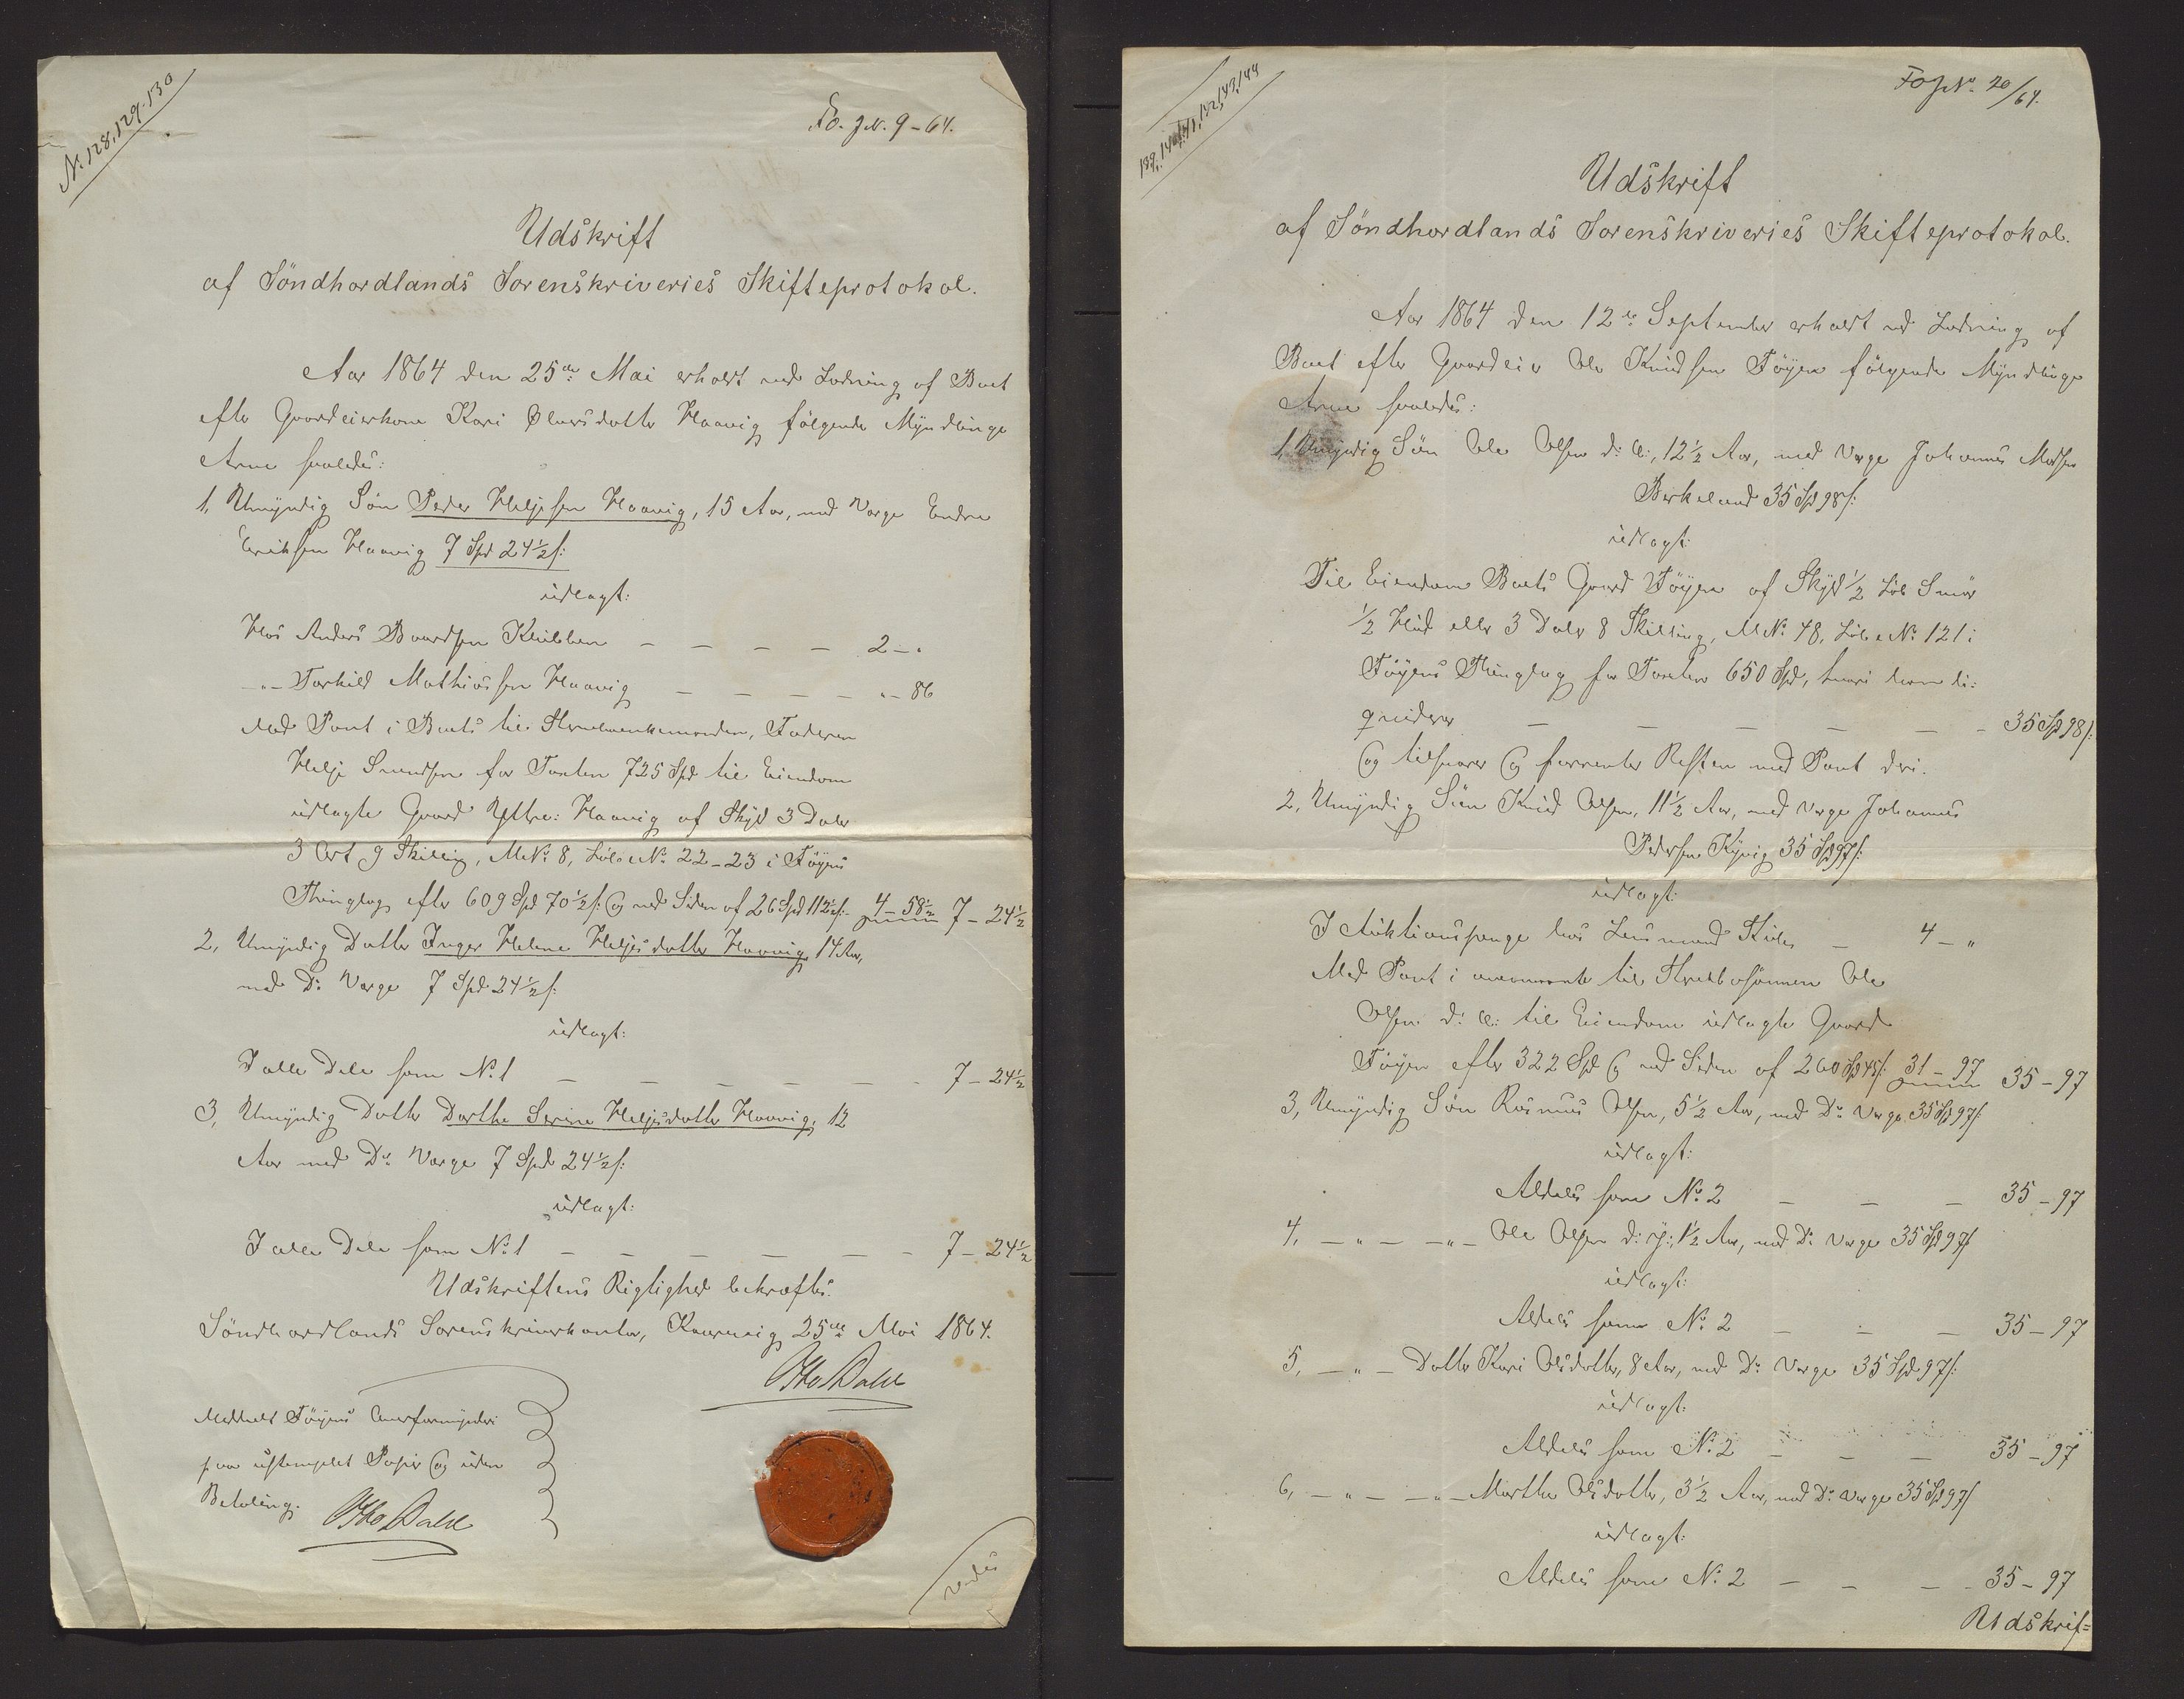 Nr. 128, 129-130
Fo. JN. 9-64.
Udskrift
af Söndhordlands Sorenskriveries Skifteprotokol.
Aar 1864 den 25de Mai erholdt ved Lodning af Boet
efter Gaardeierkone Kari Olversdatter Haavig følgende Myndlinge
Arve saaledes:
1, Umyndig Søn Peder Heljesen Haavig, 15 Aar, med Værge Endre
Eriksen Haavig 7 Spd 24½ s:
udlagt:
Hos Anders Baardsen Klubben – – – – 2 – "
– " – Torkild Mathiassen Haavig – – – – " – 86
Med Pant i Boets til Sterboenkemanden, Faderen
Helje Svendsen for Taxten 725 Spd til Eiendom
udlagte Gaard Yttre: Haavig af Skyld 3 Daler
3 Ort 9 Skilling, MNo 8, Løbe No 22-23 i Føyens
Thinglag efter 609 Spd 70½ s: og ved Siden af 26 Spd 112½ s: 4 – 58½ 7 – 24½
2, Umyndig Datter Inger Helene Heljesdatter Haavig, 14 Aar,
med Do Værge 7 Spd 24½ s:
udlagt:
I alle Dele som No 1 – – – – – – 7 – 24½
3, Umyndig Datter Dorthe Serine Heljesdatter Haavig, 12
Aar med Do Værge 7 Spd 24½ s:
udlagt:
I alle Dele som No 1 – – – – – – 7 – 24½
Udskriftens Rigtighed bekræftes.
Söndhordlands Sorenskriverkontor, 25de Mai 1864.
Otto Dahl
Meddelt Føyens Overformynderi
paa ustemplet Papir og uden
Betaling.
Otto Dahl
vendes
139, 140, 141, 142, 143, 144
Fo JN. 20/64.
Udskrift
af Söndhordlands Sorenskriveries Skifteprotokol.
Aar 1864 den 12te September erholdt ved Lodning af
Boet efter Gaardeier Ole Knudsen Föyen følgende Myndlinge
Arve saaledes:
1, Umyndig Søn Ole Olsen d: Æ:, 12½ Aar, med Værge Johannes Madsen
Berkeland 35 Spd 98 s:
udlagt:
Til Eiendom Boets Gaard Föyen af Skyld ½ Løb Smør
½ Hud eller 3 Daler 8 Skilling, MNo 48, Løbe No 121 i
Föyens Thinglag for Taxten 650 Spd, hvori han li-
qviderer – – – – – – 35 Spd 98 s:
og tilsvarer og forrenter Resten med Pant deri.
2, Umyndig Søn Knud Olsen, 11½ Aar, med Værge Johannes
Pedersen Kyvig 35 Spd 97 s:
udlagt:
I Auktionspenge hos Lensmand – 4 – "
Med Pant i ovennævnte til Sterbosønnen Ole
Olsen d: Æ: til Eiendom udlagte Gaard
Föyen efter 322 Spd og ved Siden af 260 Spd 45 s: 31 – 97 35 – 97
3, Umyndig Søn Rasmus Olsen, 5½ Aar, med Do Værge 35 Spd 97 s:
udlagt:
Aldeles som No 2 – – – 35 – 97
4, – " – – " – Ole Olsen d: y:, 1½ Aar, med Do Værge 35 Spd 97 s:
udlagt:
Aldeles som No 2 – – – 35 – 97
5, – " – Datter Kari Olsdatter, 8 Aar, med Do Værge 35 Spd 97 s:
udlagt:
Aldeles som No 2 – – – 35 – 97
6, – " – – " – Marthe Olsdatter, 3½ Aar, med Do Værge 35 Spd 97 s:
udlagt:
Aldeles som No 2 – – – 35 – 97
Udskrif=